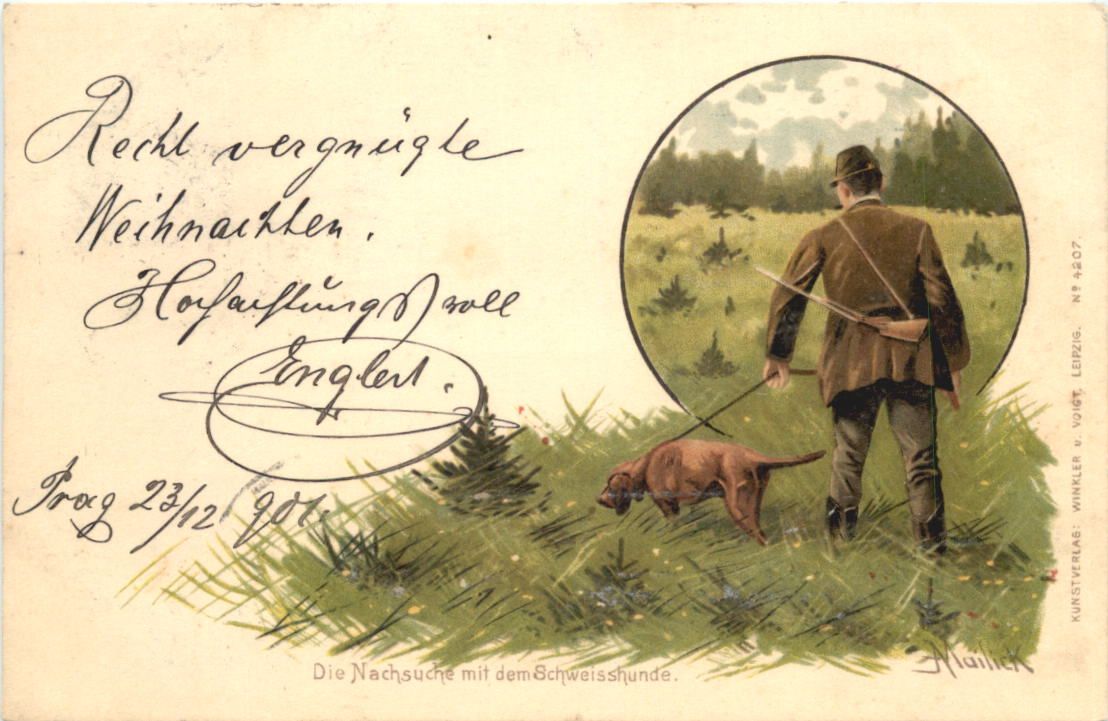 Recht vergnügte
Weihnachten.
Hochachtungsvoll
Englert.
Prag 23/12 901.
Die Nachsuche mit dem Schweisshunde.
AMailick
KUNSTVERLAG: WINKLER u. VOIGT, LEIPZIG. No 4207.